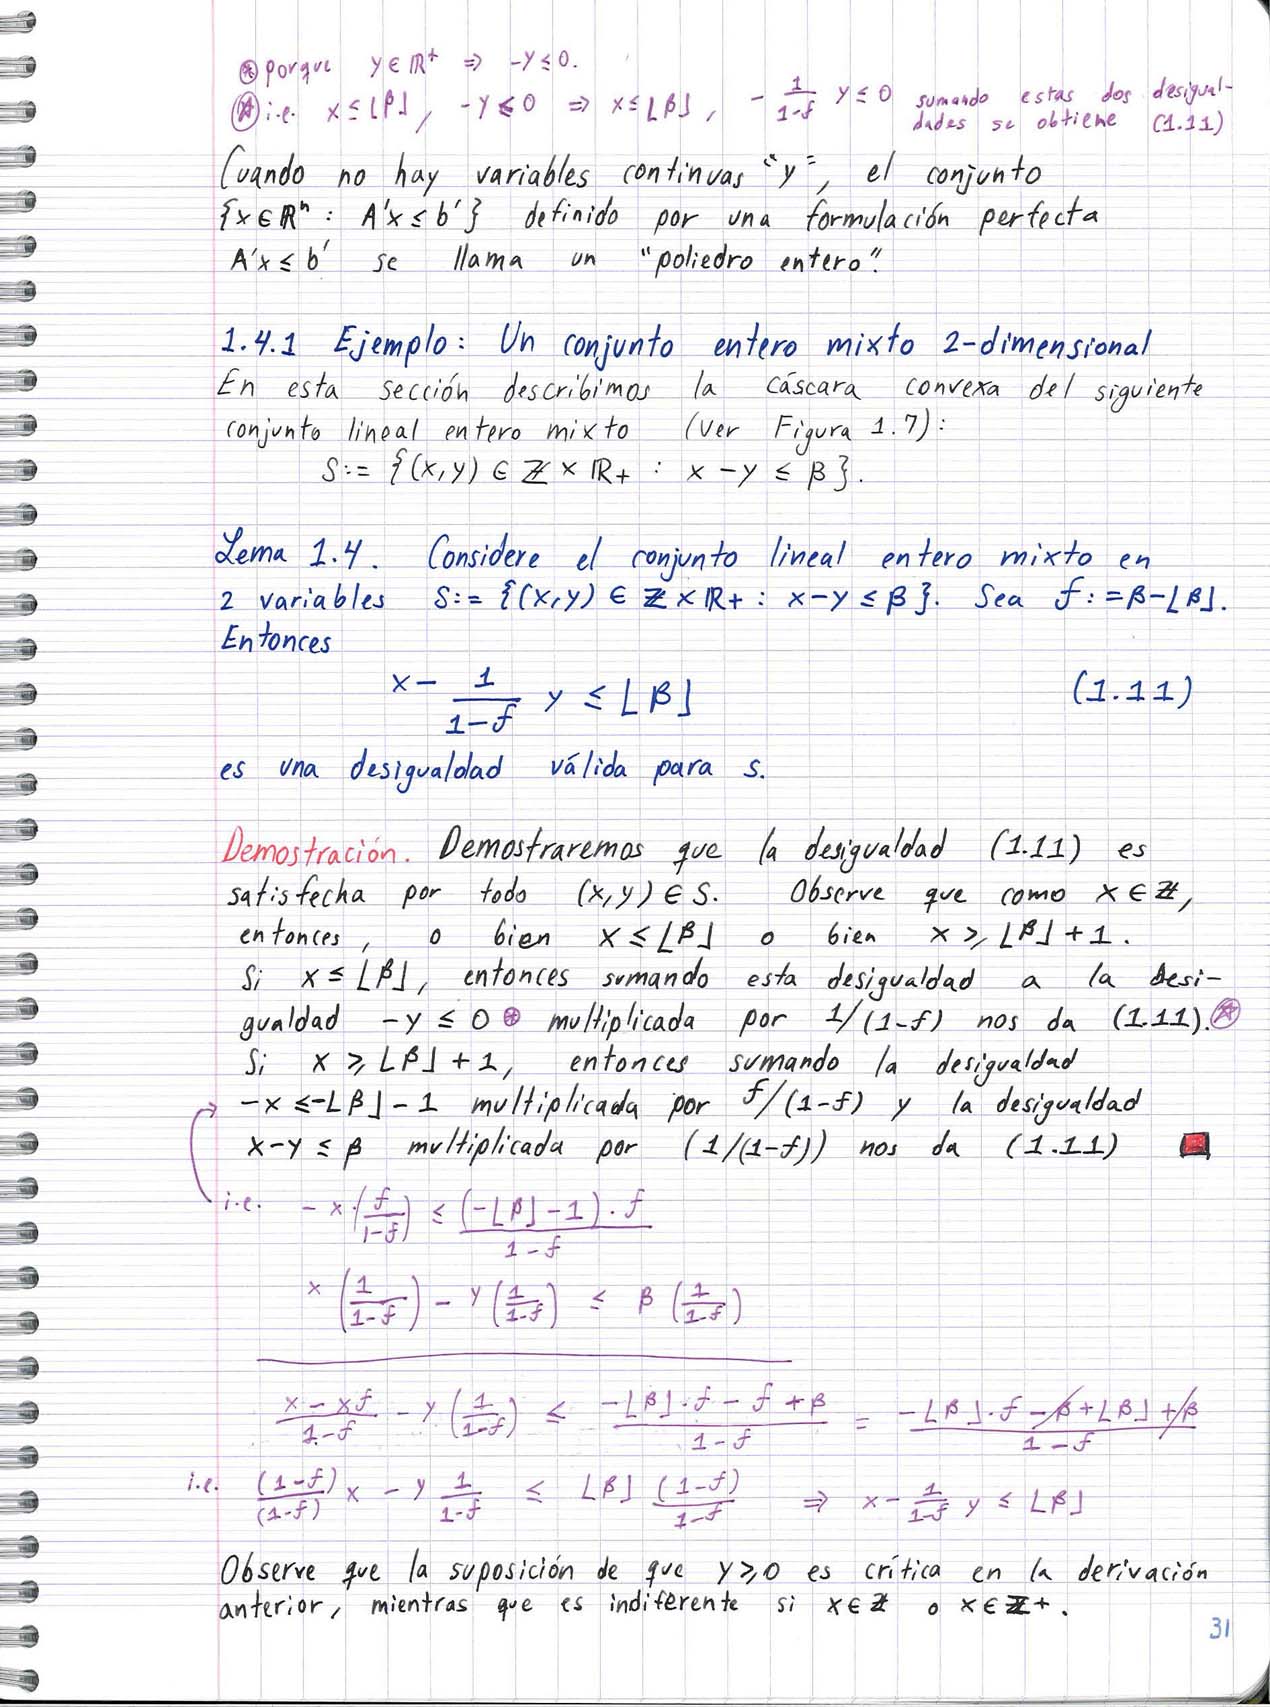 ⊛ porque y ∈ ℝ⁺ ⇒ -y ≤ 0.
⊛ i.e. x ≤ ⌊β⌋, -y ≤ 0 ⇒ x ≤ ⌊β⌋, - 1/(1-f) y ≤ 0 sumando estas dos desigual-
dades se obtiene (1.11)
Cuando no hay variables continuas "y", el conjunto
{x ∈ ℝⁿ : A'x ≤ b'} definido por una formulación perfecta
A'x ≤ b' se llama un "poliedro entero".
1.4.1 Ejemplo: Un conjunto entero mixto 2-dimensional
En esta sección describimos la cáscara convexa del siguiente
conjunto lineal entero mixto (ver Figura 1.7):
S := {(x,y) ∈ ℤ × ℝ₊ : x - y ≤ β}.
Lema 1.4. Considere el conjunto lineal entero mixto en
2 variables S := {(x,y) ∈ ℤ × ℝ₊ : x-y ≤ β}. Sea f := β-⌊β⌋.
Entonces
x - 1/(1-f) y ≤ ⌊β⌋ (1.11)
es una desigualdad válida para S.
Demostración. Demostraremos que la desigualdad (1.11) es
satisfecha por todo (x,y) ∈ S. Observe que como x ∈ ℤ,
entonces, o bien x ≤ ⌊β⌋ o bien x ≥ ⌊β⌋ + 1.
Si x ≤ ⌊β⌋, entonces sumando esta desigualdad a la desi-
gualdad -y ≤ 0 ⊛ multiplicada por 1/(1-f) nos da (1.11). ⊛
Si x ≥ ⌊β⌋ + 1, entonces sumando la desigualdad
-x ≤ -⌊β⌋ - 1 multiplicada por f/(1-f) y la desigualdad
x-y ≤ β multiplicada por (1/(1-f)) nos da (1.11)
i.e. -x · (f/(1-f)) ≤ (-⌊β⌋ - 1) · f/(1-f)
x (1/(1-f)) - y (1/(1-f)) ≤ β (1/(1-f))
(x - xf)/(1-f) - y (1/(1-f)) ≤ (-⌊β⌋ · f - f + β)/(1-f) = (-⌊β⌋ · f - β + ⌊β⌋ + β)/(1-f)
i.e. (1-f)/(1-f) x - y 1/(1-f) ≤ ⌊β⌋ (1-f)/(1-f) ⇒ x - 1/(1-f) y ≤ ⌊β⌋
Observe que la suposición de que y ≥ 0 es crítica en la derivación
anterior, mientras que es indiferente si x ∈ ℤ o x ∈ ℤ₊.
31